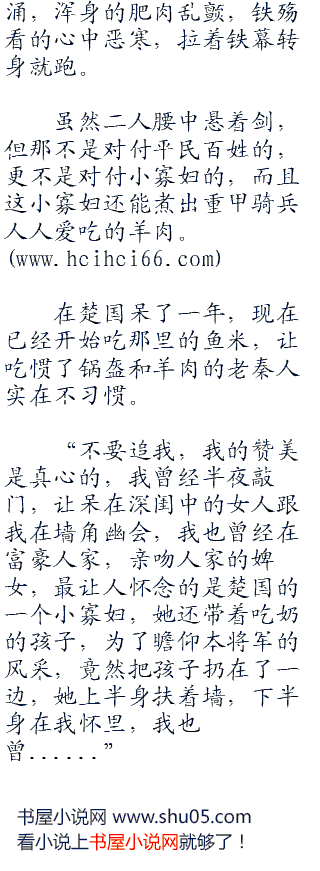 涌，浑身的肥肉乱颤，铁殇
看的心中恶寒，拉着铁幕转
身就跑。
虽然二人腰中悬着剑，
但那不是对付平民百姓的，
更不是对付小寡妇的，而且
这小寡妇还能煮出重甲骑兵
人人爱吃的羊肉。
(www.hcihci66.com)
在楚国呆了一年，现在
已经开始吃那里的鱼米，让
吃惯了锅盔和羊肉的老秦人
实在不习惯。
“不要追我，我的赞美
是真心的，我曾经半夜敲
门，让呆在深闺中的女人跟
我在墙角幽会，我也曾经在
富豪人家，亲吻人家的婢
女，最让人怀念的是楚国的
一个小寡妇，她还带着吃奶
的孩子，为了瞻仰本将军的
风采，竟然把孩子扔在了一
边，她上半身扶着墙，下半
身在我怀里，我也
曾......”
书屋小说网 www.shu05.com
看小说上书屋小说网就够了！